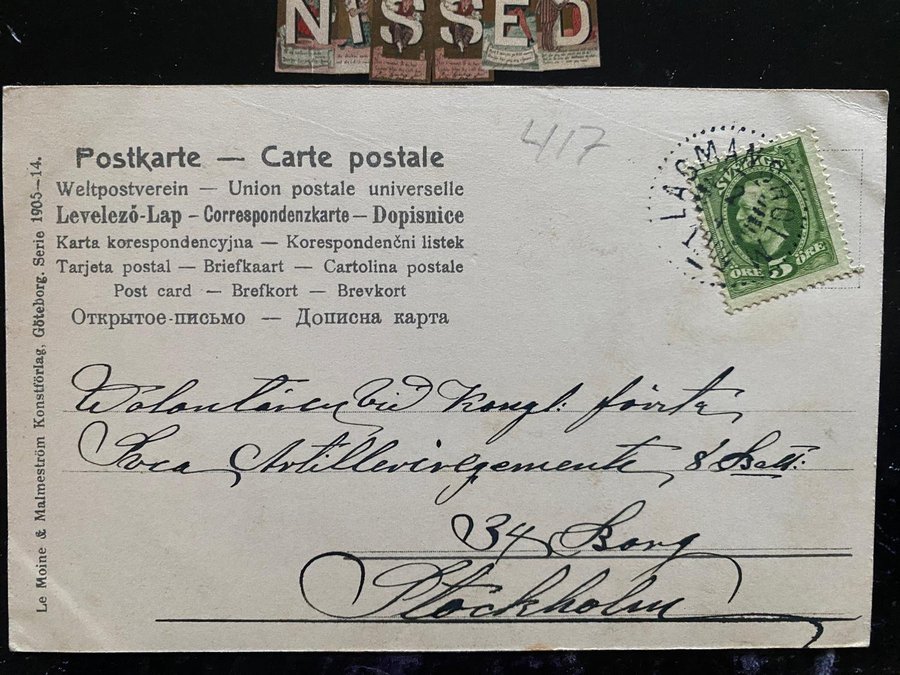 NISSED
417
Postkarte — Carte postale
Weltpostverein — Union postale universelle
Levelező-Lap – Correspondenzkarte – Dopisnice
Karta korespondencyjna — Korespondenčni listek
Tarjeta postal — Briefkaart — Cartolina postale
Post card — Brefkort — Brevkort
Открытое-письмо — Дописна карта
Le Moine & Malmeström Konstförlag, Göteborg. Serie 1905—14.
SVERIGE
ÖRE 5 ÖRE
Volontären vid Kongl: första
Svea Artilleriregemente 8 Batt:
34 Borg
Stockholm